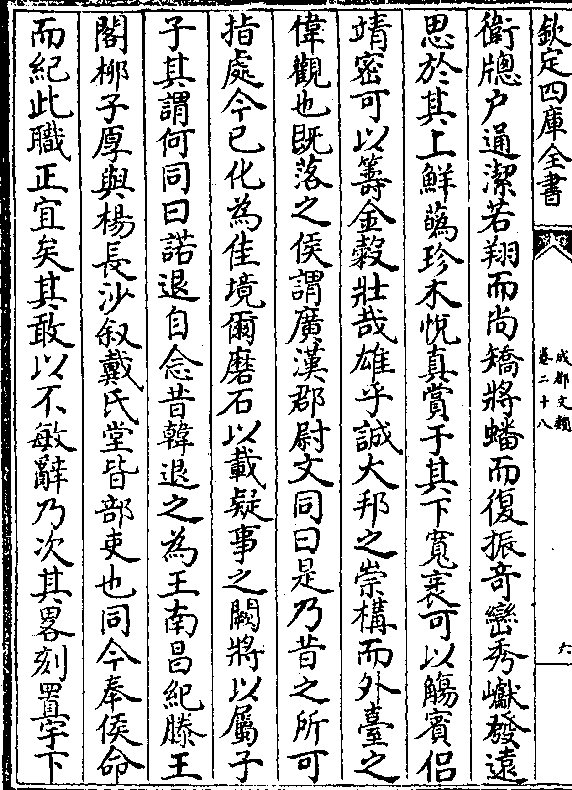 欽定四庫全書
成都文類
卷二十八
六
衝牕户通潔若翔而尚矯將蟠而復振奇巒秀巘發遠
思於其上鮮蘤珍木恱真賞于其下寬袤可以觴賓侣
靖密可以籌金穀壯哉雄乎誠大邦之崇構而外臺之
偉觀也既落之侯謂廣漢郡尉文同曰是乃昔之所可
指處今已化為佳境爾磨石以載疑事之闕將以屬子
子其謂何同曰諾退自念昔韓退之為王南昌紀滕王
閣栁子厚與楊長沙叙戴氏堂皆部吏也同今奉侯命
而紀此職正宜矣其敢以不敏辭乃次其畧刻置宇下